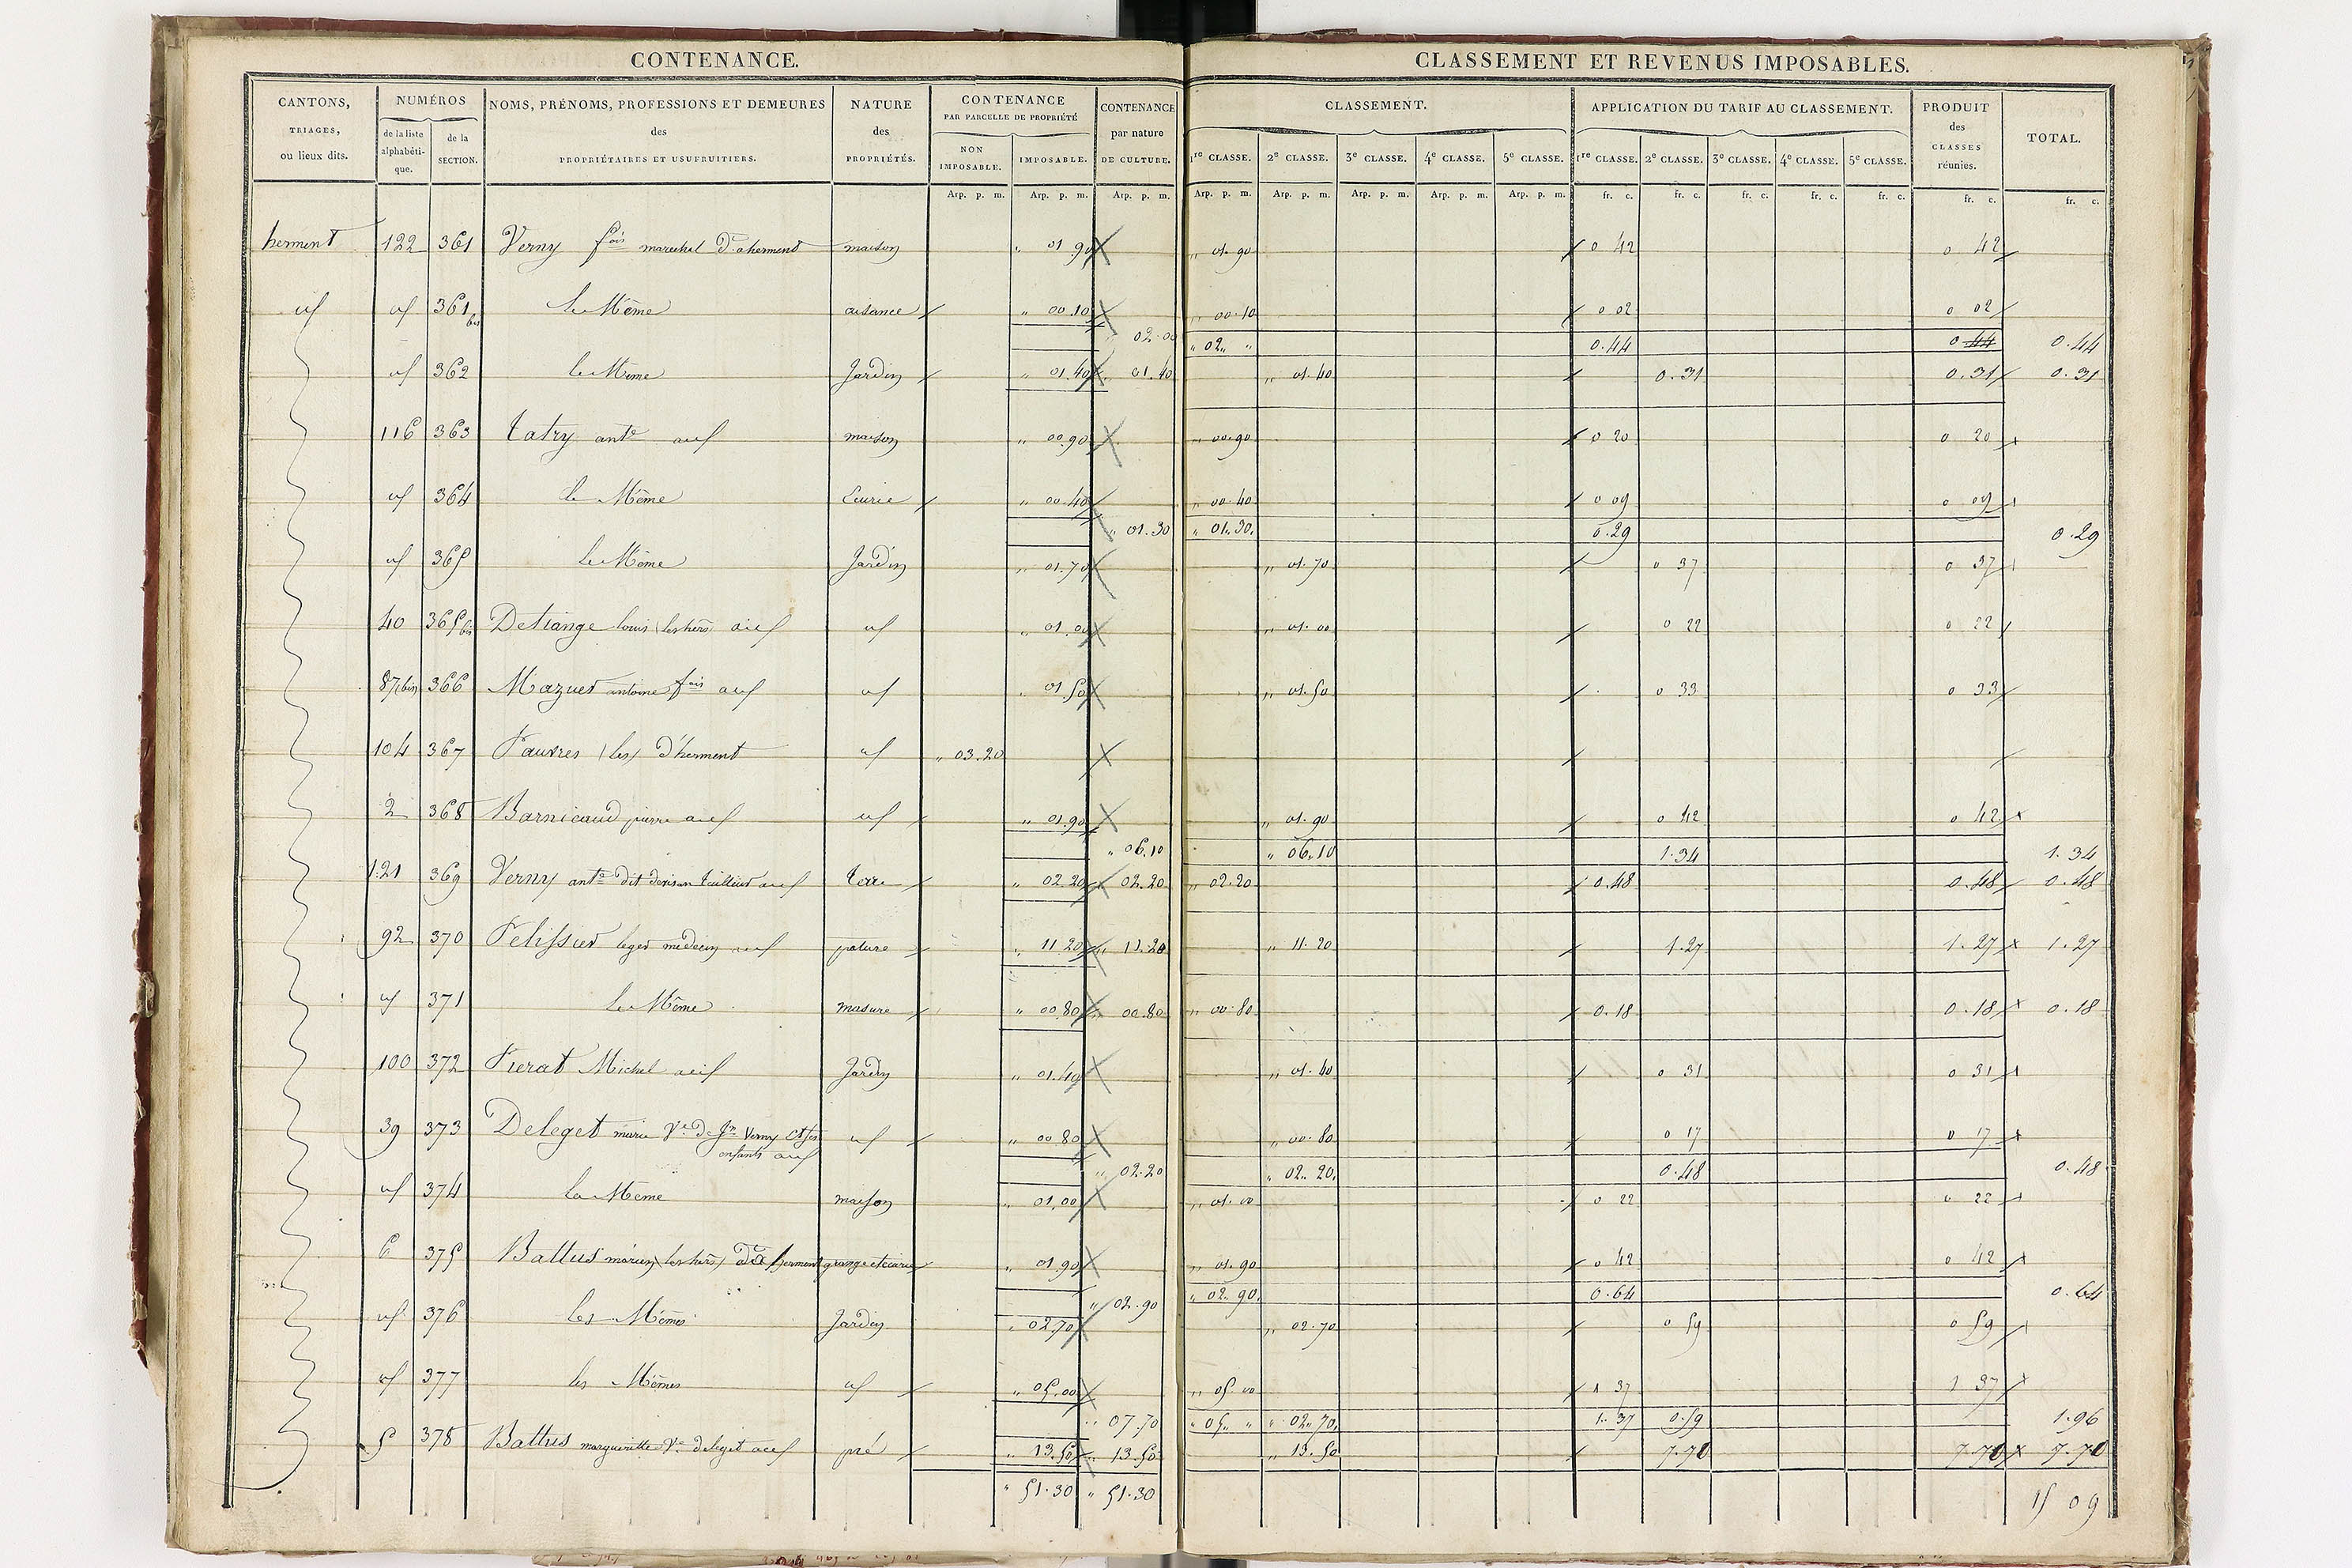 CONTENANCE.
CLASSEMENT ET REVENUS IMPOSABLES.
CANTONS, TRIAGES, ou lieux dits.
NUMÉROS
de la liste alphabétique.
de la SECTION.
NOMS, PRÉNOMS, PROFESSIONS ET DEMEURES des PROPRIÉTAIRES ET USUFRUITIERS.
NATURE des PROPRIÉTÉS.
CONTENANCE PAR PARCELLE DE PROPRIÉTÉ
NON IMPOSABLE.
IMPOSABLE.
CONTENANCE par nature DE CULTURE.
CLASSEMENT.
1re CLASSE. 2e CLASSE. 3e CLASSE. 4e CLASSE. 5e CLASSE.
APPLICATION DU TARIF AU CLASSEMENT.
1re CLASSE. 2e CLASSE. 3e CLASSE. 4e CLASSE. 5e CLASSE.
PRODUIT des CLASSES réunies.
TOTAL.
Arp. p. m. Arp. p. m. Arp. p. m. Arp. p. m. Arp. p. m. Arp. p. m. Arp. p. m. Arp. p. m. fr. c. fr. c. fr. c. fr. c. fr. c. fr. c. fr. c.
herment 122 361 Verny fois marechal d'aherment maison " 01.90 " 01.90 0 42 0 42
id id 361 bis le Même aisance " 00.10 " 00.10 0 02 0 02
02.00 " 02 " " 0.44 0.44 0.44
id 362 le Même Jardin " 01.40 " 01.40 " 01.40 0.31 0.31 0.31
116 363 tatry ante aid maison " 00.90 " 00.90 0 20 0 20
id 364 le Même Ecurie " 00.40 " 00.40 0 09 0 09
" 01.30 " 01.30 0.29 0.29
id 365 le Même Jardin " 01.70 " 01.70 0 37 0 37
40 365 bis Detiange louis (les hers) aid id " 01.00 " 01.00 0 22 0 22
87 bis 366 Mazuer antoine fois aid id " 01.50 " 01.50 0 33 0 33
104 367 Pauvres (les) d'herment id " 03.20
2 368 Barnicaud pierre aid id " 01.90 " 01.90 0 42 0 42
" 06.10 " 06.10 1.34 1.34
121 369 Verny ante dit tailleur aid terre " 02.20 " 02.20 " 02.20 0.48 0.48 0.48
92 370 Pelissier leger medecin aid pature " 11.20 " 11.20 " 11.20 1.27 1.27 1.27
id 371 le Même masure " 00.80 " 00.80 " 00.80 0.18 0.18 0.18
100 372 Pierat Michel aid Jardin " 01.40 " 01.40 0 31 0 31
39 373 Deleget marie Ve de Jn Verny et ses enfants aid id " 00 80 " 00.80 0 17 0 17
" 02.20 " 02.20 0.48 0.48
id 374 la Même maison " 01.00 " 01.00 0 22 0 22
6 375 Battus (les hers) herment grange et écurie " 01.90 " 01.90 0 42 0 42
" 02.90 " 02.90 0.64 0.64
id 376 les Mêmes Jardin " 02.70 " 02.70 0 59 0 59
id 377 les Mêmes id " 05.00 " 05.00 1 37 1 37
" 07.70 " 05 " " 02.70 1.37 0.59 1.96
5 378 Battus marguerite Ve deleget aid pré " 13.50 " 13.50 " 13.50 7.70 7.70 7.70
" 51.30 " 51.30 15 09